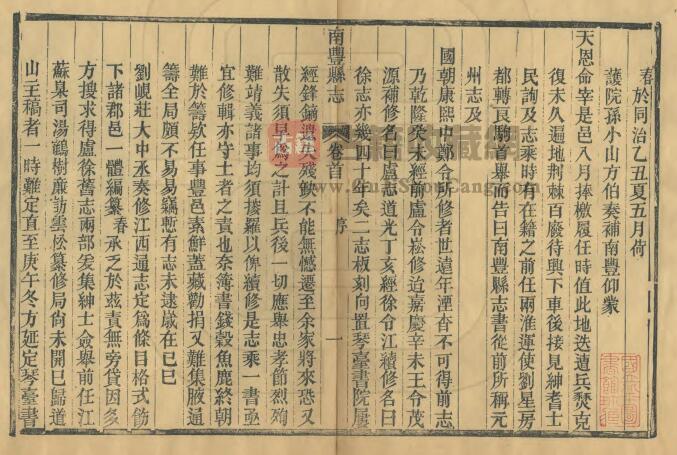 春於同治乙丑夏五月荷
護院孫小山方伯奏補南豐仰蒙
天恩命宰是邑八月捧檄履任時值此地迭遭兵燹克
復未久遍地荆棘百廢待興下車後接見紳耆士
民詢及志乘時有在籍之前任兩淮運使劉星房
都轉良駒首舉而告曰南豐縣志書從前所稱元
州志及
國朝康熙中鄭令所修者世遠年湮杳不可得前志
乃乾隆癸未經前盧令崧修迨嘉慶辛未王令茂
源補修名曰盧志道光丁亥經徐令江續修名曰
徐志亦幾四十年矣二志板刻向置琴臺書院屢
南豐縣志 卷首 序 一
經鋒鏑遺失殘缺不能無憾遷至余家將來恐又
散失須早為之計且兵後一切應舉忠孝節烈殉
難靖義諸事均須搜羅以俾續修是志乘一書亟
宜修輯亦守土者之責也奈簿書錢穀魚鹿終朝
難於籌欵任事豐邑素鮮蓋藏勸捐又難集腋通
籌全局頗不易易竊慙有志未逮嵗在己巳
劉峴莊大中丞奏修江西通志定為條目格式飭
下諸郡邑一體編纂春承乏於兹責無旁貸因多
方搜求得盧徐舊志兩部爰集紳士僉舉前任江
蘇臬司湯鶴樹廉訪雲松纂修局尚未開巳歸道
山主稿者一時難定直至庚午冬方延定琴臺書